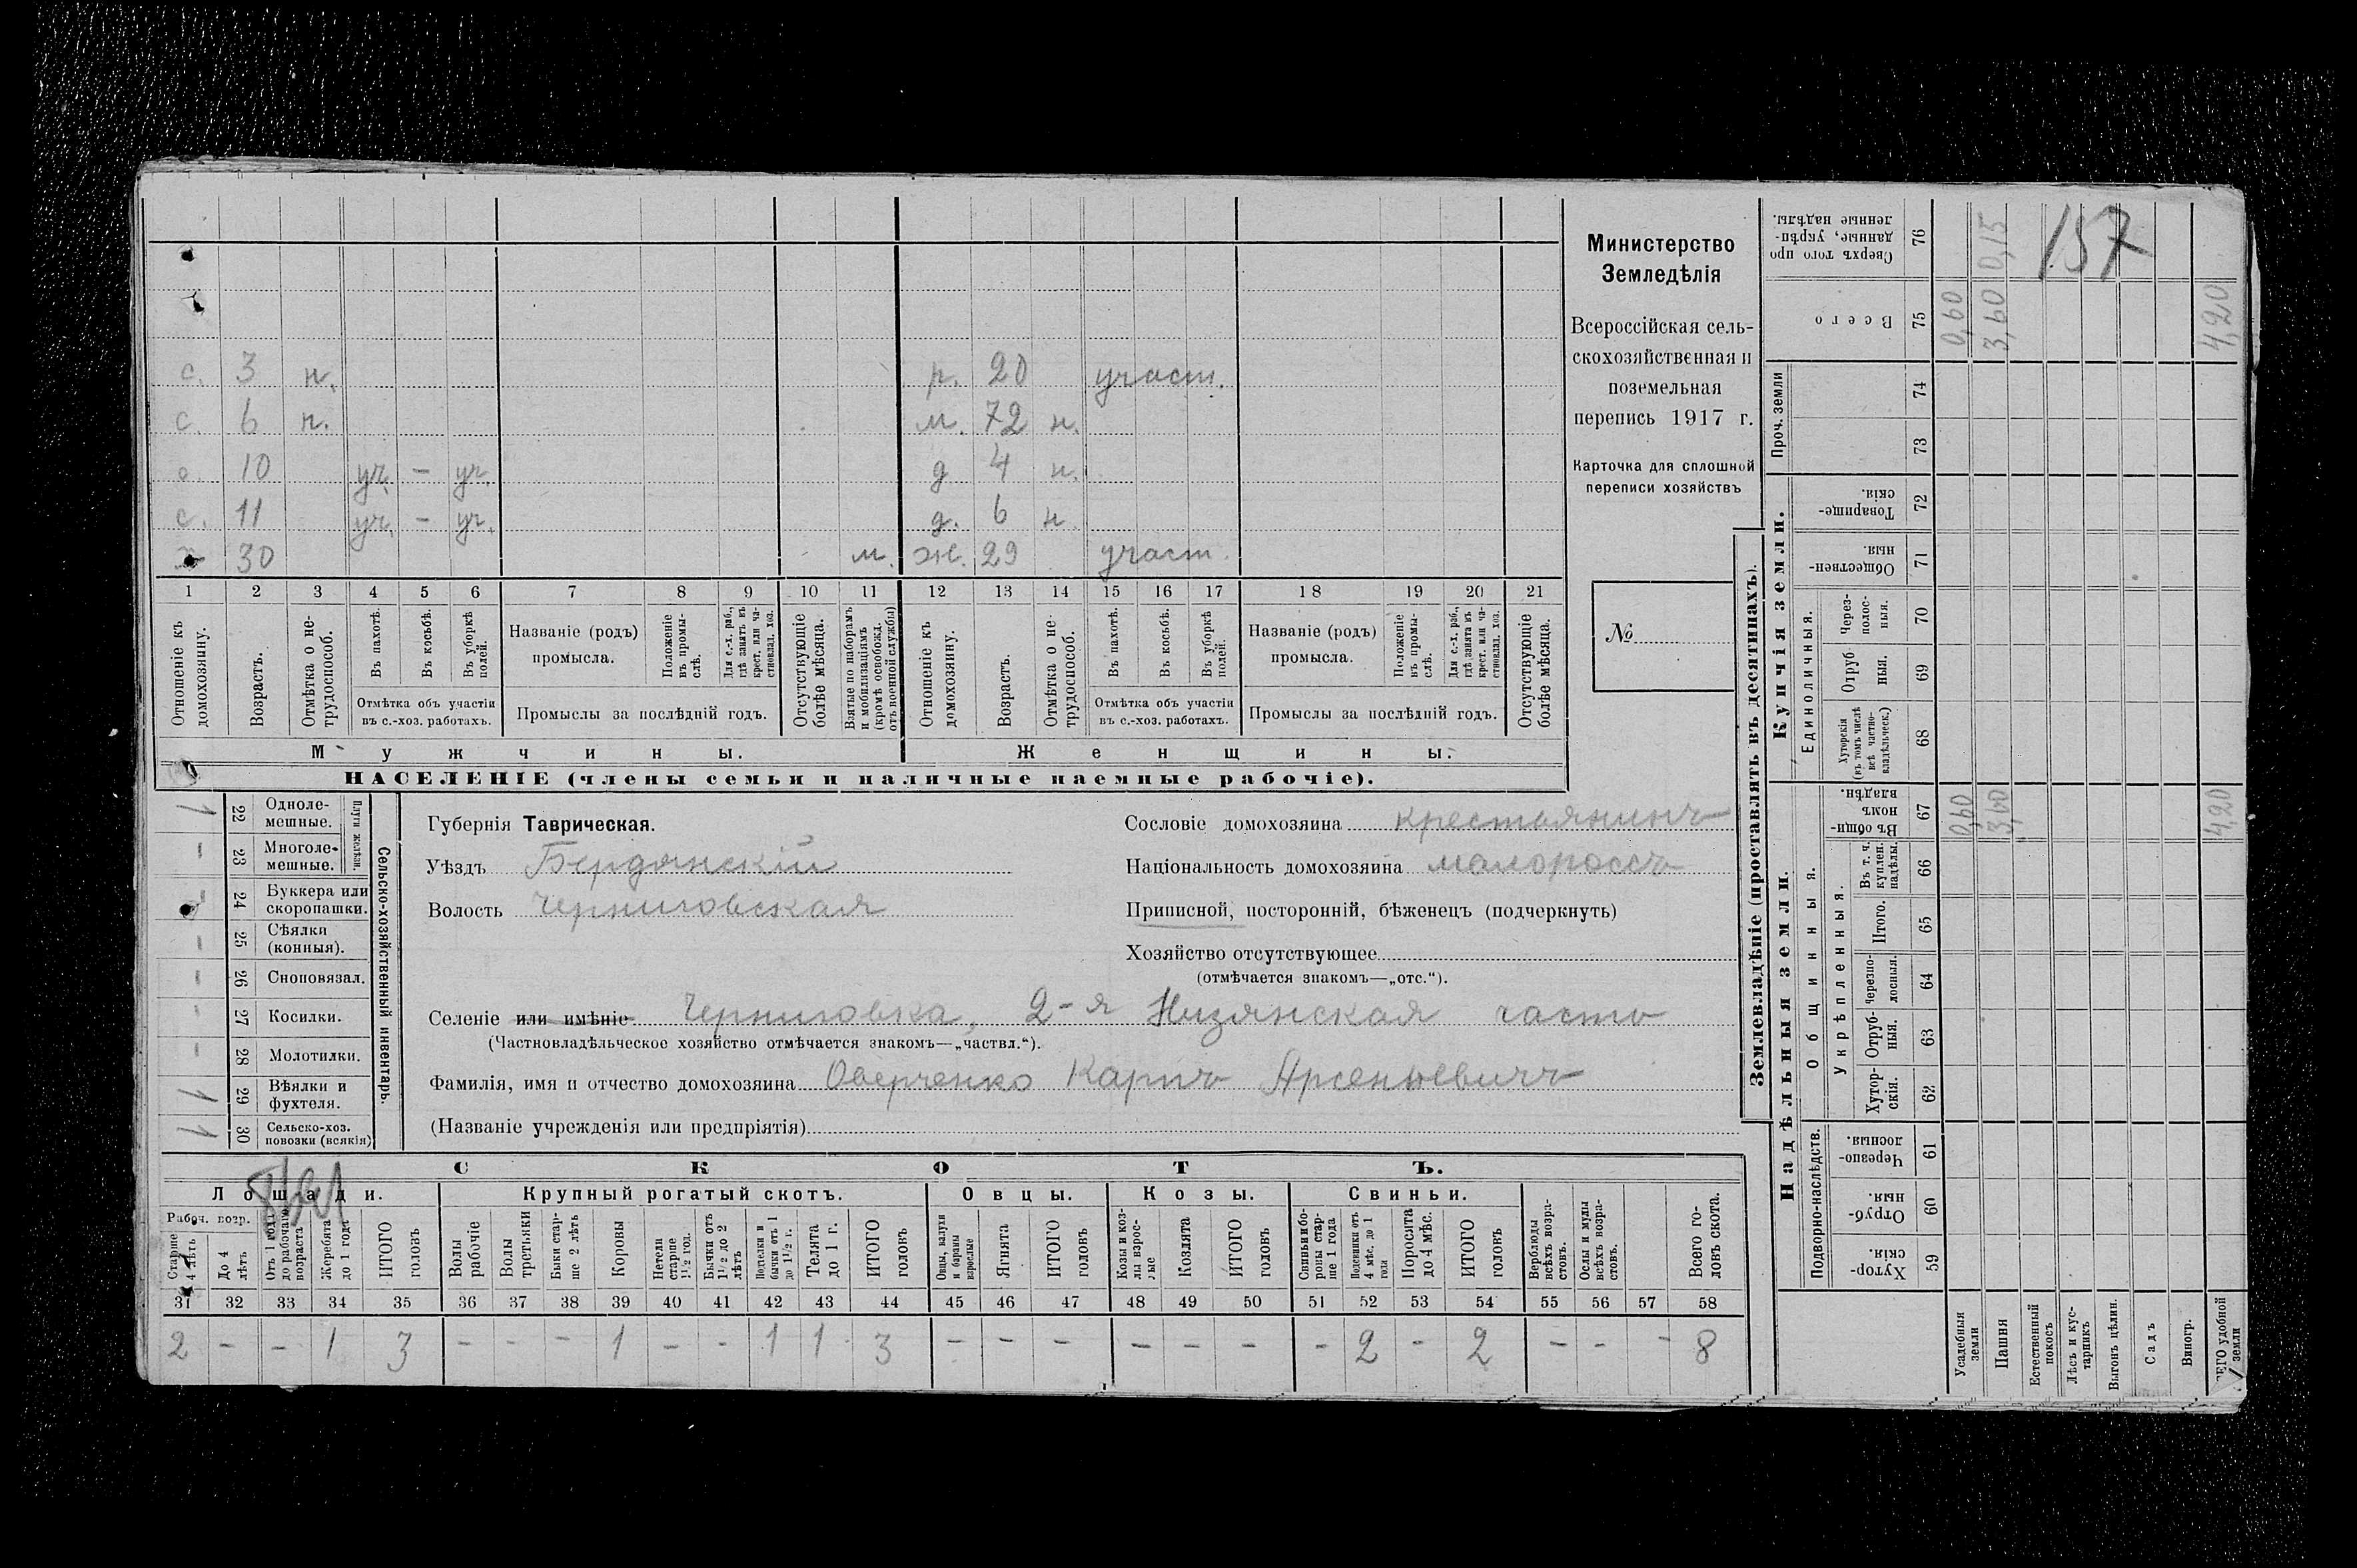 Министерство
Земледѣлія
Всероссійская сель-
скохозяйственная и
поземельная
перепись 1917 г.
Карточка для сплошной
переписи хозяйствъ
№
157
с. 3 н. р. 20 участ.
с. 6 н. м. 72 н.
с. 10 уч. - уч. д 4 н.
с. 11 уч. - уч. д. 6 н.
х 30 м. ж. 29 участ.
1 2 3 4 5 6 7 8 9 10 11 12 13 14 15 16 17 18 19 20 21
Отношеніе къ домохозяину.
Возрастъ.
Отмѣтка о не-трудоспособ.
Въ пахотѣ.
Въ косьбѣ.
Въ уборкѣ полей.
Отмѣтка объ участіи
въ с.-хоз. работахъ.
Названіе (родъ)
промысла.
Положеніе въ промы-слѣ.
Для с.-х. раб., гдѣ занятъ въ крест. или ча-стновлад. хоз.
Промыслы за послѣдній годъ.
Отсутствующіе болѣе мѣсяца.
Взятые по наборамъ и мобилизаціямъ (кромѣ освобожд. отъ военной службы)
Отношеніе къ домохозяину.
Возрастъ.
Отмѣтка о не-трудоспособ.
Въ пахотѣ.
Въ косьбѣ.
Въ уборкѣ полей.
Отмѣтка объ участіи
въ с.-хоз. работахъ.
Названіе (родъ)
промысла.
Положеніе въ промы-слѣ.
Для с.-х. раб., гдѣ занята въ крест. или ча-стновлад. хоз.
Промыслы за послѣдній годъ.
Отсутствующіе болѣе мѣсяца.
Мужчины.
Женщины.
НАСЕЛЕНІЕ (члены семьи и наличные наемные рабочіе).
Сельско-хозяйственный инвентарь.
1 22 Одноле-мешные.
- 23 Многоле-мешные.
- 24 Буккера или скоропашки.
- 25 Сѣялки (конныя).
- 26 Сноповязал.
- 27 Косилки.
- 28 Молотилки.
1 29 Вѣялки и фухтеля.
1 30 Сельско-хоз. повозки (всякія)
Губернія Таврическая.
Уѣздъ Бердянскій
Волость Черниговская
Сословіе домохозяина крестьянинъ
Національность домохозяина малороссъ
Приписной, посторонній, бѣженецъ (подчеркнуть)
Хозяйство отсутствующее
(отмѣчается знакомъ—„отс.“).
Селеніе или имѣніе Черниговка, 2-я Низянская часть
(Частновладѣльческое хозяйство отмѣчается знакомъ—„частвл.“).
Фамилія, имя и отчество домохозяина Оверченко Карпъ Арсеньевичъ
(Названіе учрежденія или предпріятія)
СКОТЪ.
Лошади. Крупный рогатый скотъ. Овцы. Козы. Свиньи.
Рабоч. возр.
Старше 4 лѣтъ
До 4 лѣтъ
Отъ 1 года до рабочаго возраста
Жеребята до 1 года
ИТОГО головъ
Волы рабочіе
Волы третьяки
Быки стар-ше 2 лѣтъ
Коровы
Нетели старше 1 1/2 год.
Бычки отъ 1 1/2 до 2 лѣтъ
Подтелки и бычки отъ 1 до 1 1/2 г.
Телята до 1 г.
ИТОГО головъ
Овцы, валухи и бараны взрослые
Ягнята
ИТОГО головъ
Козы и коз-лы взрос-лые
Козлята
ИТОГО головъ
Свиньи и бо-ровы стар-ше 1 года
Подсвинки отъ 4 мѣс. до 1 года
Поросята до 4 мѣс.
ИТОГО головъ
Верблюды всѣхъ возра-стовъ.
Ослы и мулы всѣхъ возра-стовъ.
Всего го-ловъ скота.
31 32 33 34 35 36 37 38 39 40 41 42 43 44 45 46 47 48 49 50 51 52 53 54 55 56 57 58
2 - - 1 3 - - - 1 - - 1 1 3 - - - - - - - 2 - 2 - - - 8
Землевладѣніе (проставлять въ десятинахъ).
Надѣльныя земли.
Купчія земли.
Проч. земли
Подворно-наслѣдств.
Общинныя.
Укрѣпленныя.
Единоличныя.
Хутор-скія. 59
Отруб-ныя. 60
Черезпо-лосныя. 61
Хутор-скія. 62
Отруб-ныя. 63
Черезпо-лосныя. 64
Итого. 65
Въ т. ч. куплен. надѣлы. 66
Въ общи-номъ владѣн. 67
Хуторскія (въ томъ числѣ всѣ частно-владѣльческ.) 68
Отруб ныя. 69
Через-полос-ныя. 70
Обществен-ныя. 71
Товарище-скія. 72
73
74
Всего 75
Сверхъ того про данные, укрѣп-ленные надѣлы. 76
Усадебныя земли 0,60 0,60
Пашня 3,60 3,60 0,15
Естественный покосъ
Лѣсъ и кус-тарникъ
Выгонъ цѣлин.
Садъ
Виногр.
удобной земли 4,20 4,20